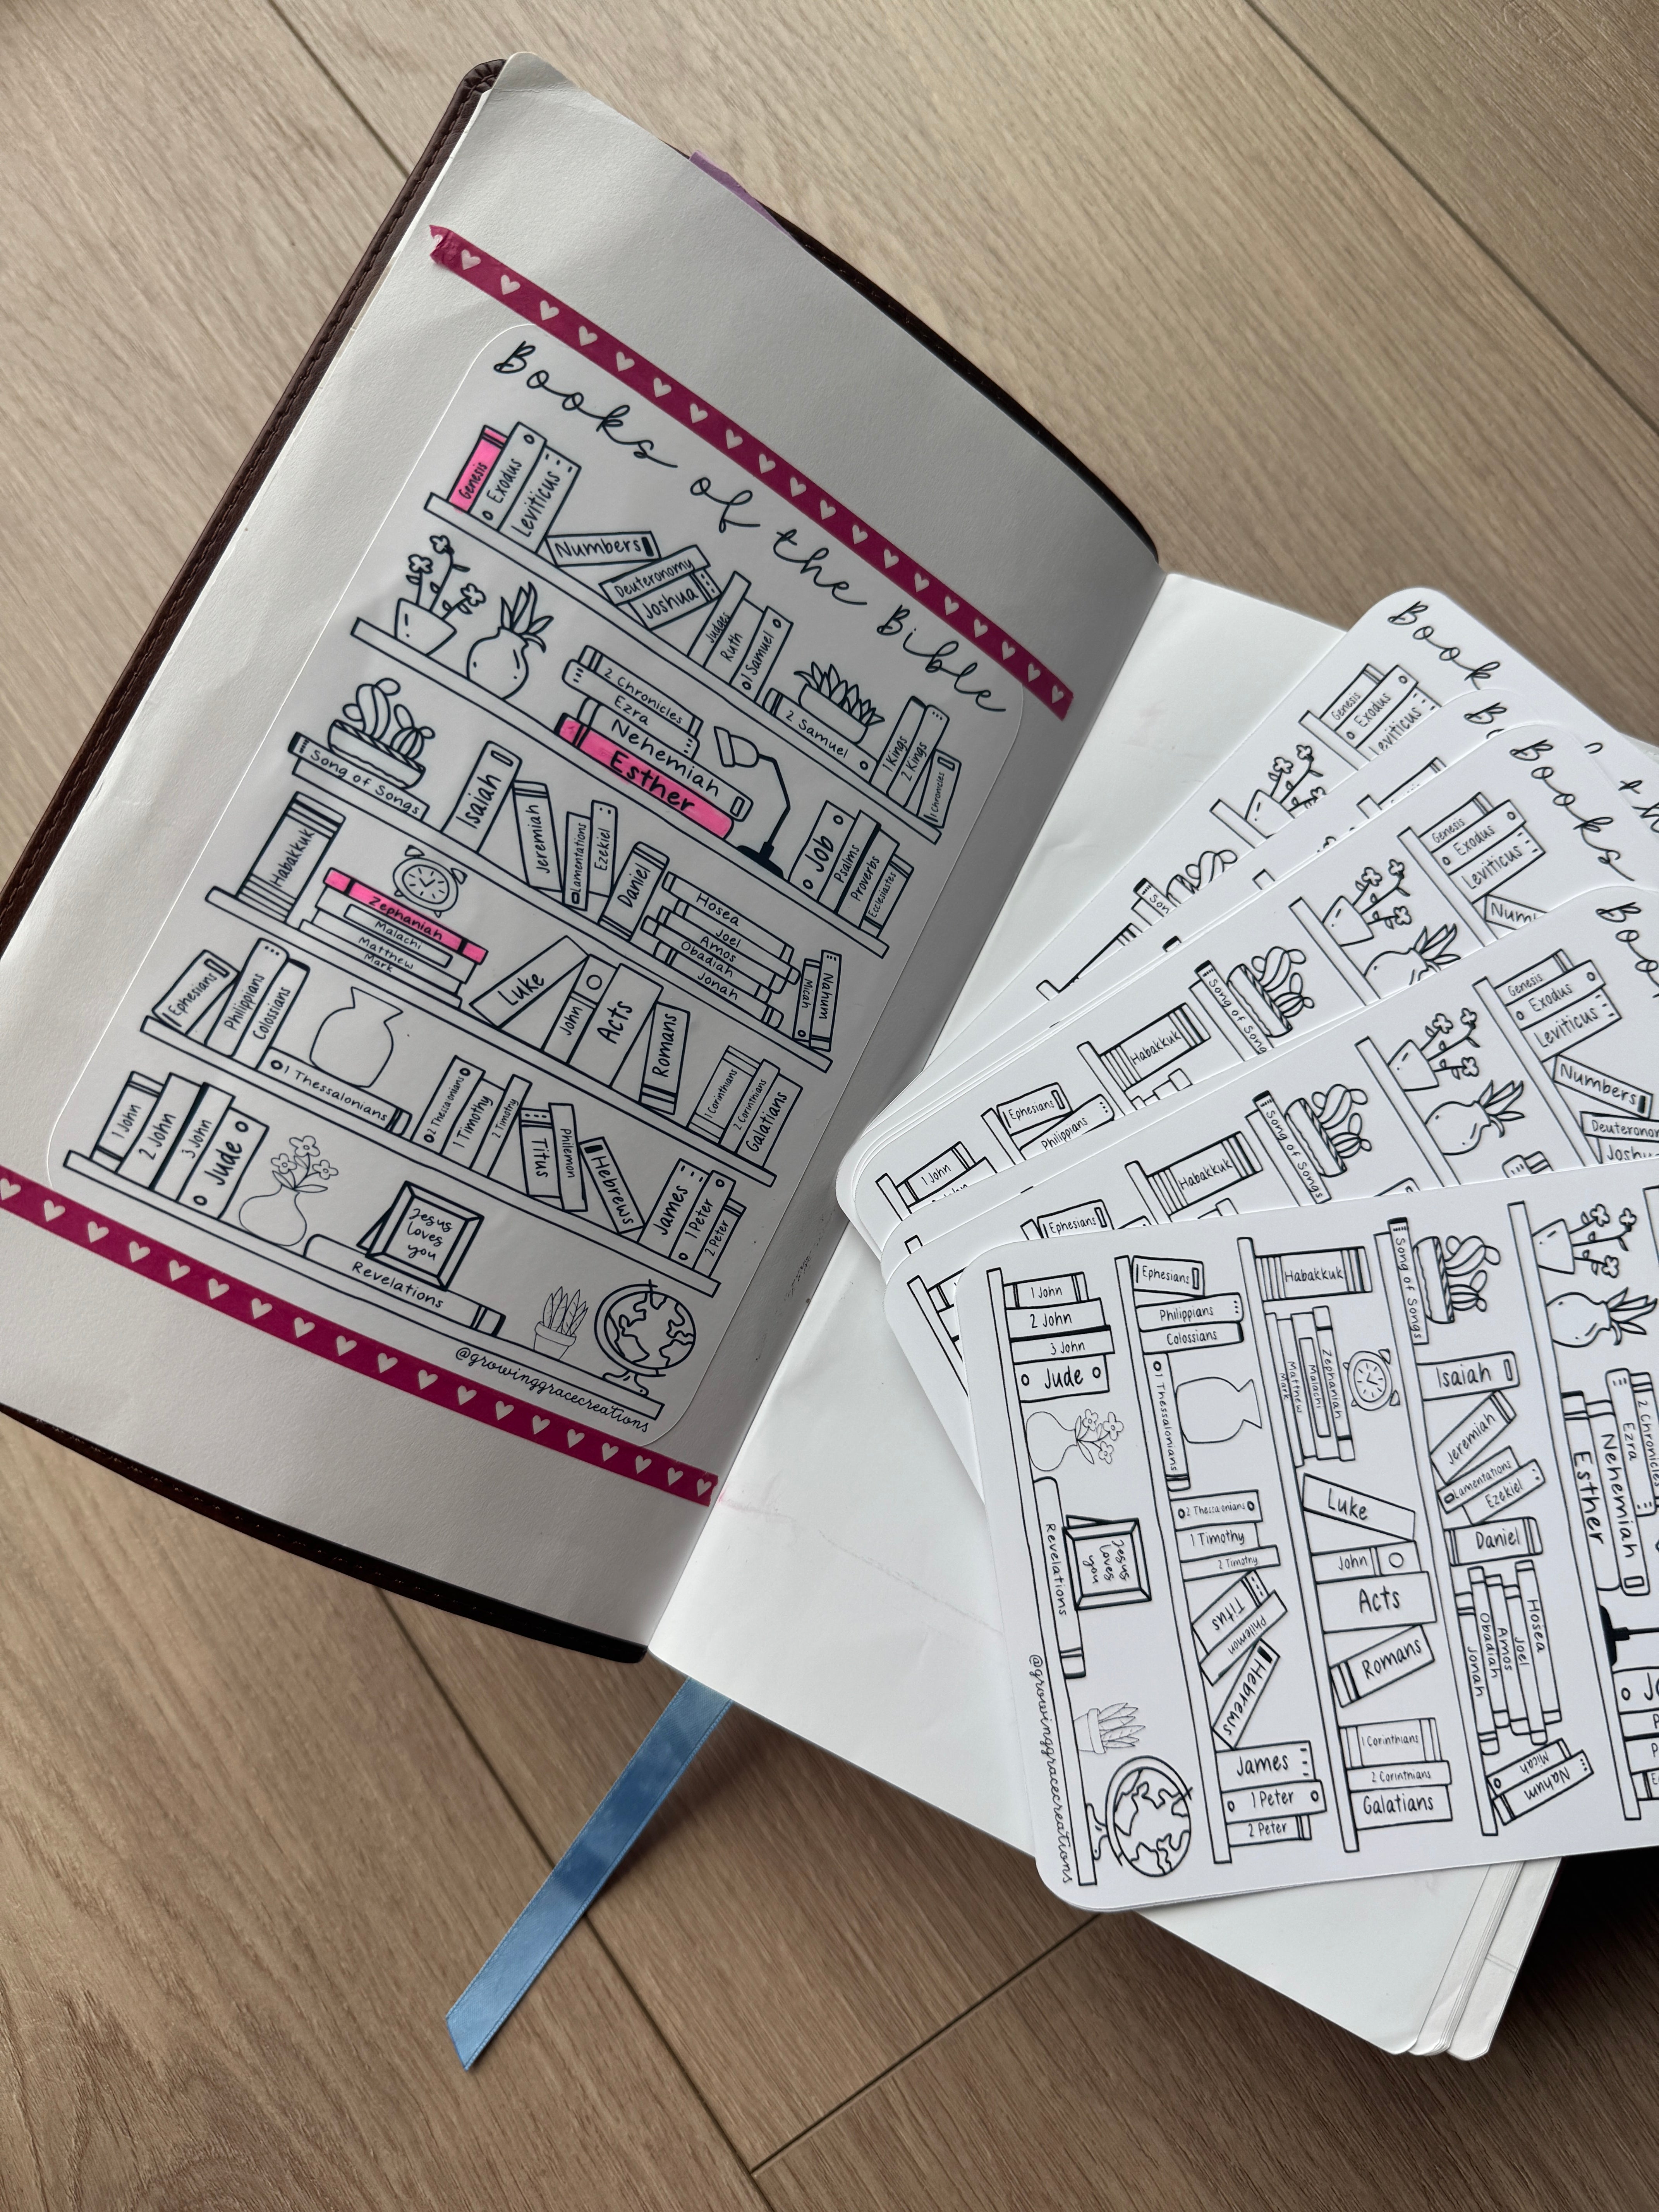 Books of the Bible
Genesis
Exodus
Leviticus
Numbers
Deuteronomy
Joshua
Judges
Ruth
1 Samuel
2 Samuel
1 Kings
2 Kings
1 Chronicles
2 Chronicles
Ezra
Nehemiah
Esther
Job
Psalms
Proverbs
Ecclesiastes
Song of Songs
Isaiah
Jeremiah
Lamentations
Ezekiel
Daniel
Hosea
Joel
Amos
Obadiah
Jonah
Micah
Nahum
Habakkuk
Zephaniah
Malachi
Matthew
Mark
Luke
John
Acts
Romans
1 Corinthians
2 Corinthians
Galatians
Ephesians
Philippians
Colossians
1 Thessalonians
2 Thessalonians
1 Timothy
2 Timothy
Titus
Philemon
Hebrews
James
1 Peter
2 Peter
1 John
2 John
3 John
Jude
Jesus
loves
you
Revelations
@growinggracecreations
Book
Genesis
Exodus
Leviticus
1 John
Ephesians
Philippians
Habakkuk
Song of Song
Books
Genesis
Exodus
Leviticus
Num
Ephesians
Habakkuk
Song of Songs
Boo
Genesis
Exodus
Leviticus
Numbers
Deuteronom
Joshu
1 John
2 John
3 John
Jude
Jesus
loves
you
Revelations
@growinggracecreations
Ephesians
Philippians
Colossians
1 Thessalonians
2 Thessalonians
1 Timothy
2 Timothy
Titus
Philemon
Hebrews
James
1 Peter
2 Peter
Habakkuk
Zephaniah
Malachi
Matthew
Mark
Luke
John
Acts
Romans
1 Corinthians
2 Corinthians
Galatians
Song of Songs
Isaiah
Jeremiah
Lamentations
Ezekiel
Daniel
Hosea
Joel
Amos
Obadiah
Jonah
Micah
Nahum
2 Chronicles
Ezra
Nehemiah
Esther